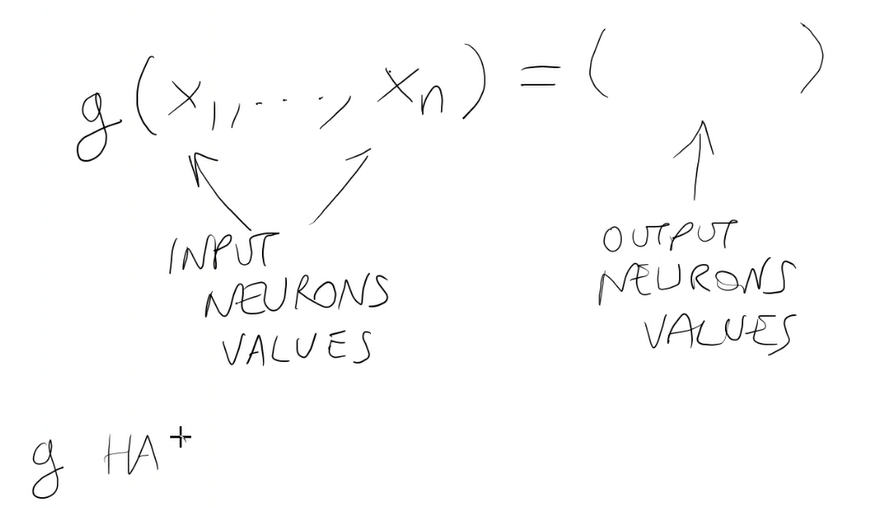 g(x₁, ..., xₙ) = ( )
INPUT
NEURONS
VALUES
OUTPUT
NEURONS
VALUES
g HA